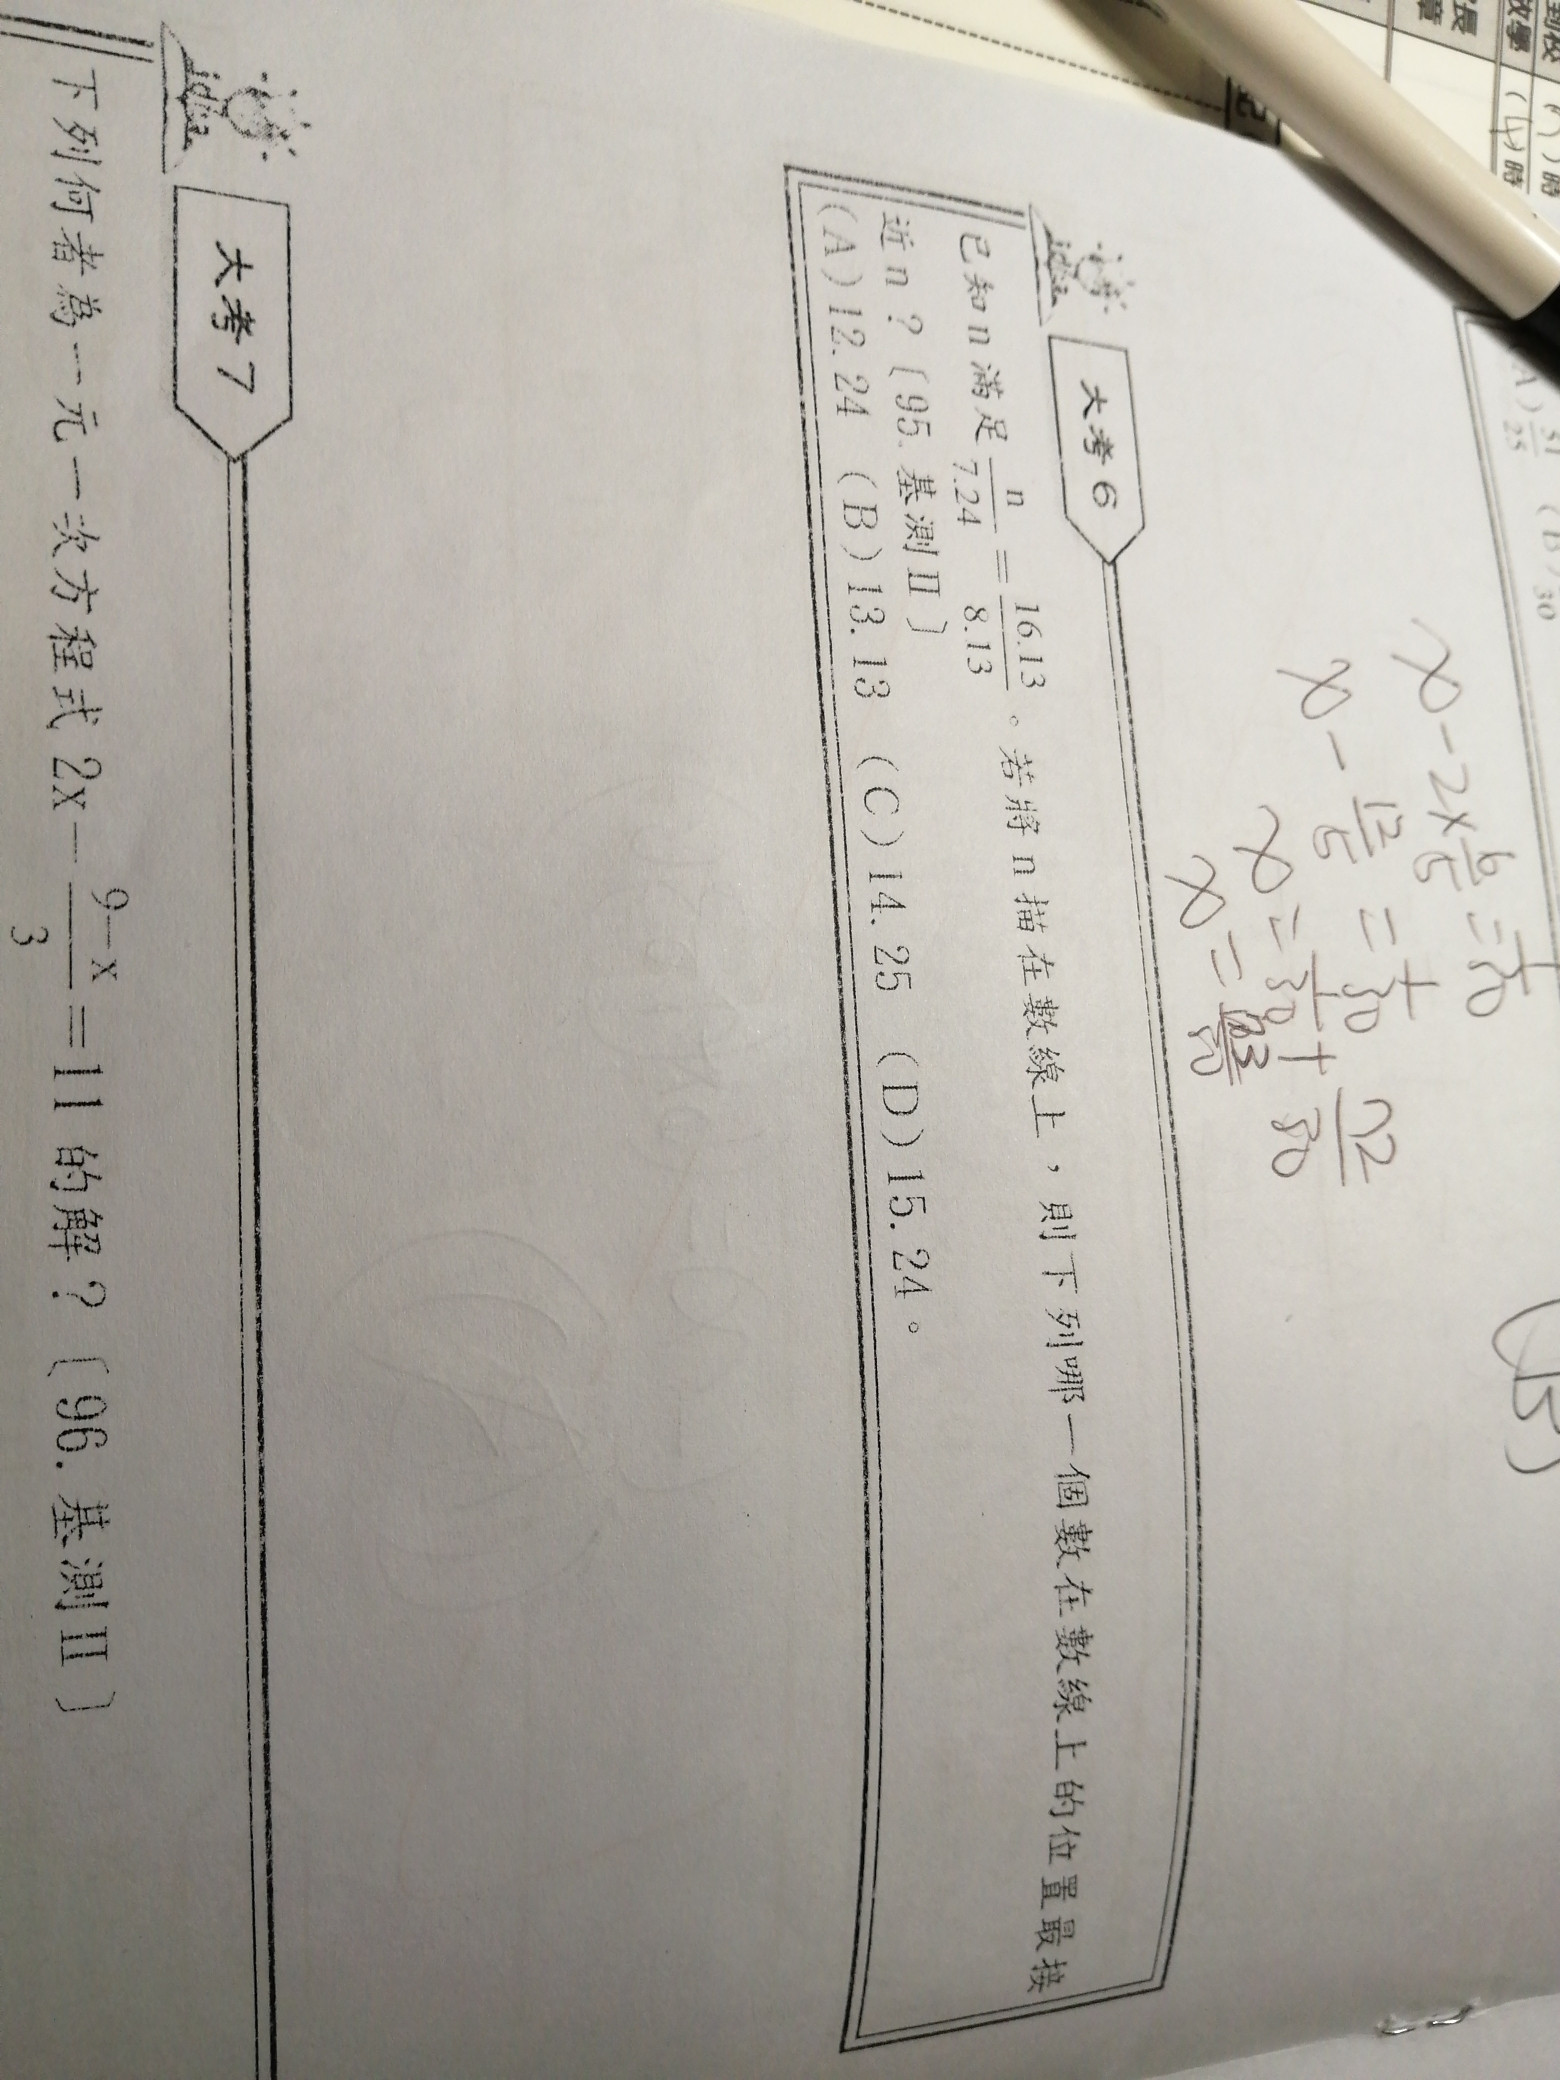 (A) 51/25 (B) /30
x-2×6/5=1/50
x-12/5=1/50
x=1/50+
x=
(B)
idea
大考6
已知n滿足 n/7.24 = 16.13/8.13 。若將n描在數線上,則下列哪一個數在數線上的位置最接
近n?〔95.基測II〕
(A)12.24 (B)13.13 (C)14.25 (D)15.24。
idea
大考7
下列何者為一元一次方程式 2x- 9-x/3 =11 的解?〔96.基測II〕